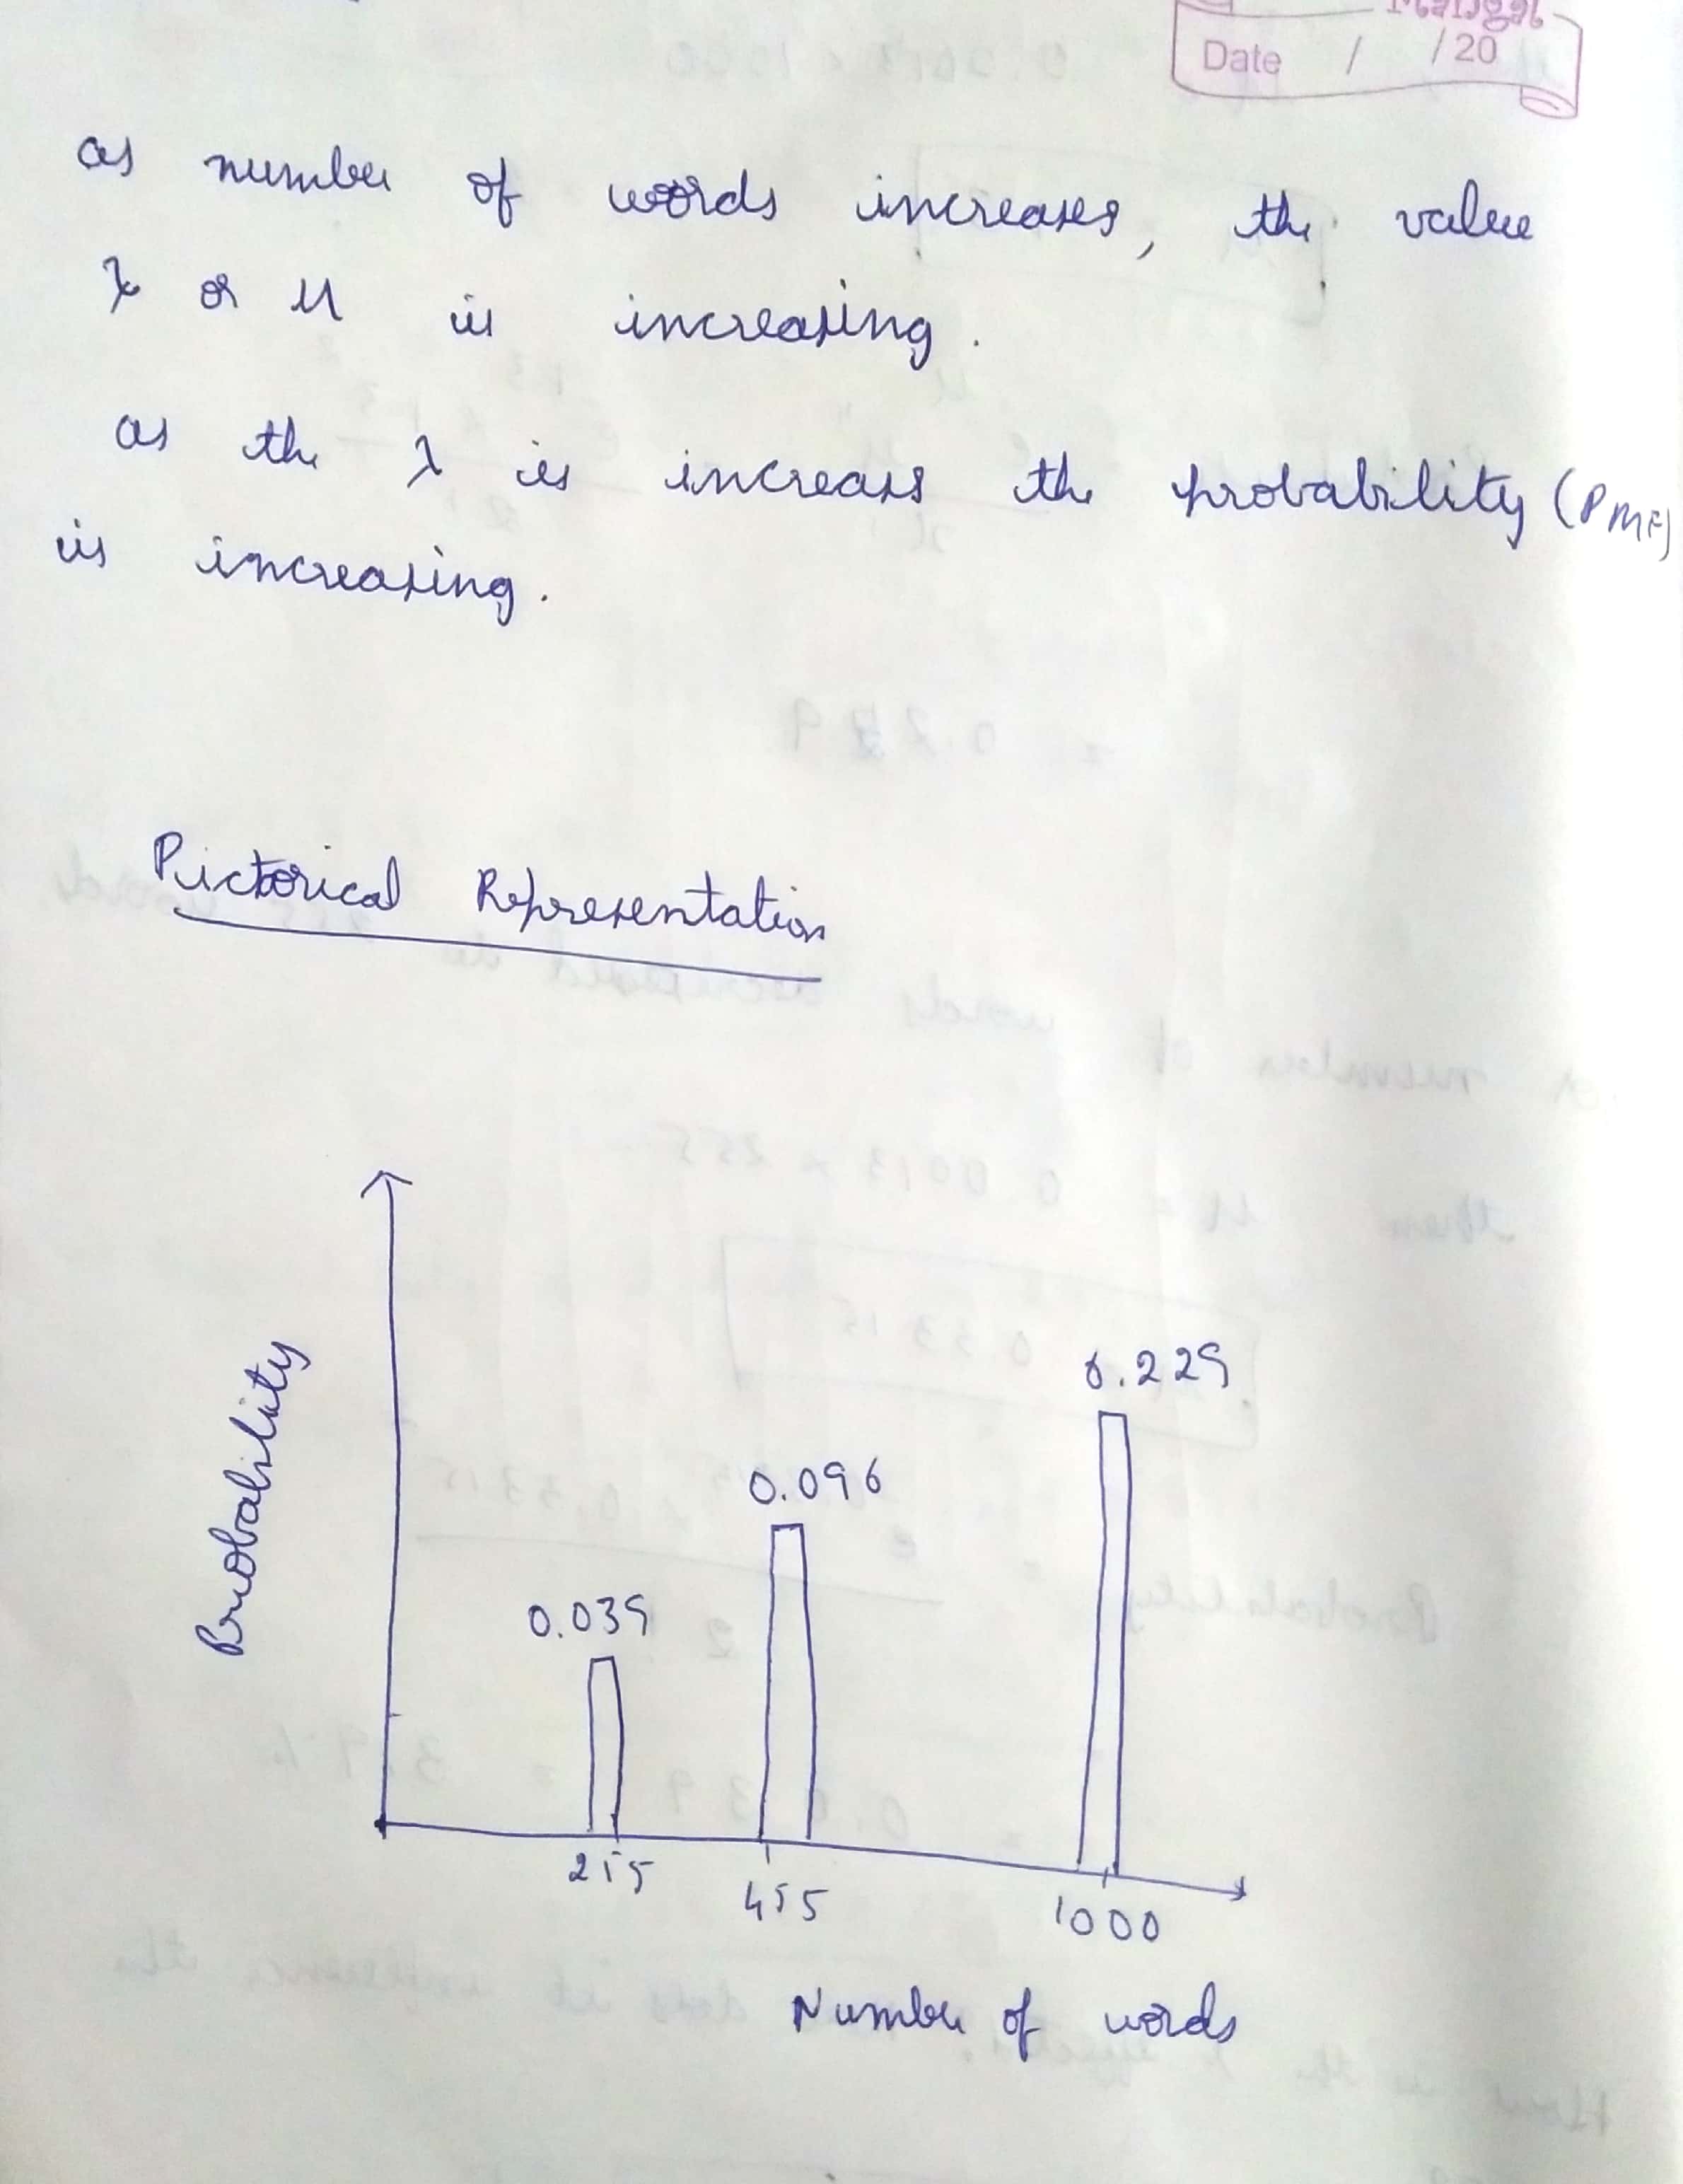 Mangal
Date / /20
as number of words increases, the value
λ or μ is increasing.
as the λ is increass the probability (PMF)
is increasing.
Pictorical Representation
Probability
0.229
0.096
0.039
255
455
1000
Number of words